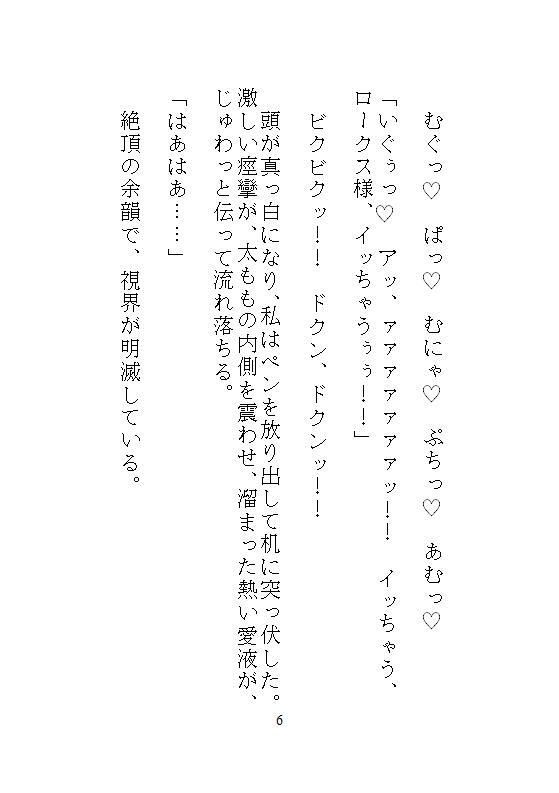 むぐっ♡　ぱっ♡　むにゃ♡　ぷちっ♡　あむっ♡
「いぐぅっ♡　アッ、ァァァァァァァッ！！　イッちゃう、
ロークス様、イッちゃうぅぅ！！」
ビクビクッ！！　ドクン、ドクンッ！！
頭が真っ白になり、私はペンを放り出して机に突っ伏した。
激しい痙攣が、太ももの内側を震わせ、溜まった熱い愛液が、
じゅわっと伝って流れ落ちる。
「はあはあ……」
絶頂の余韻で、視界が明滅している。
6